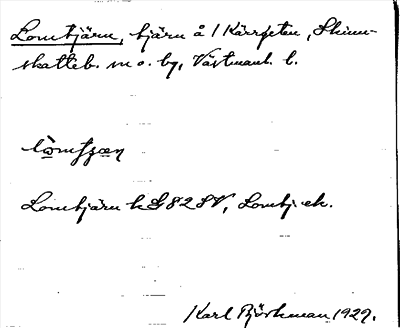 Lomtjärn, tjärn å 1 Kärrgeten, Skinn-
skatteb. sn o. bg, Västmanl. l.
Lomtjärn k G 82 SV, Lomtj. ek.
Karl Björkman 1929.